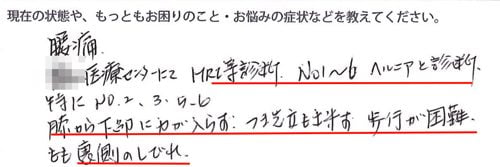 現在の状態や、もっともお困りのこと・お悩みの症状などを教えてください。
腰痛
医療センターにて MRI等診断、NO1〜6 ヘルニアと診断、
特に NO.2、3、5-6
膝から下部に力が入らず:つま先立ち出来ず 歩行が困難、
もも裏側のしびれ。